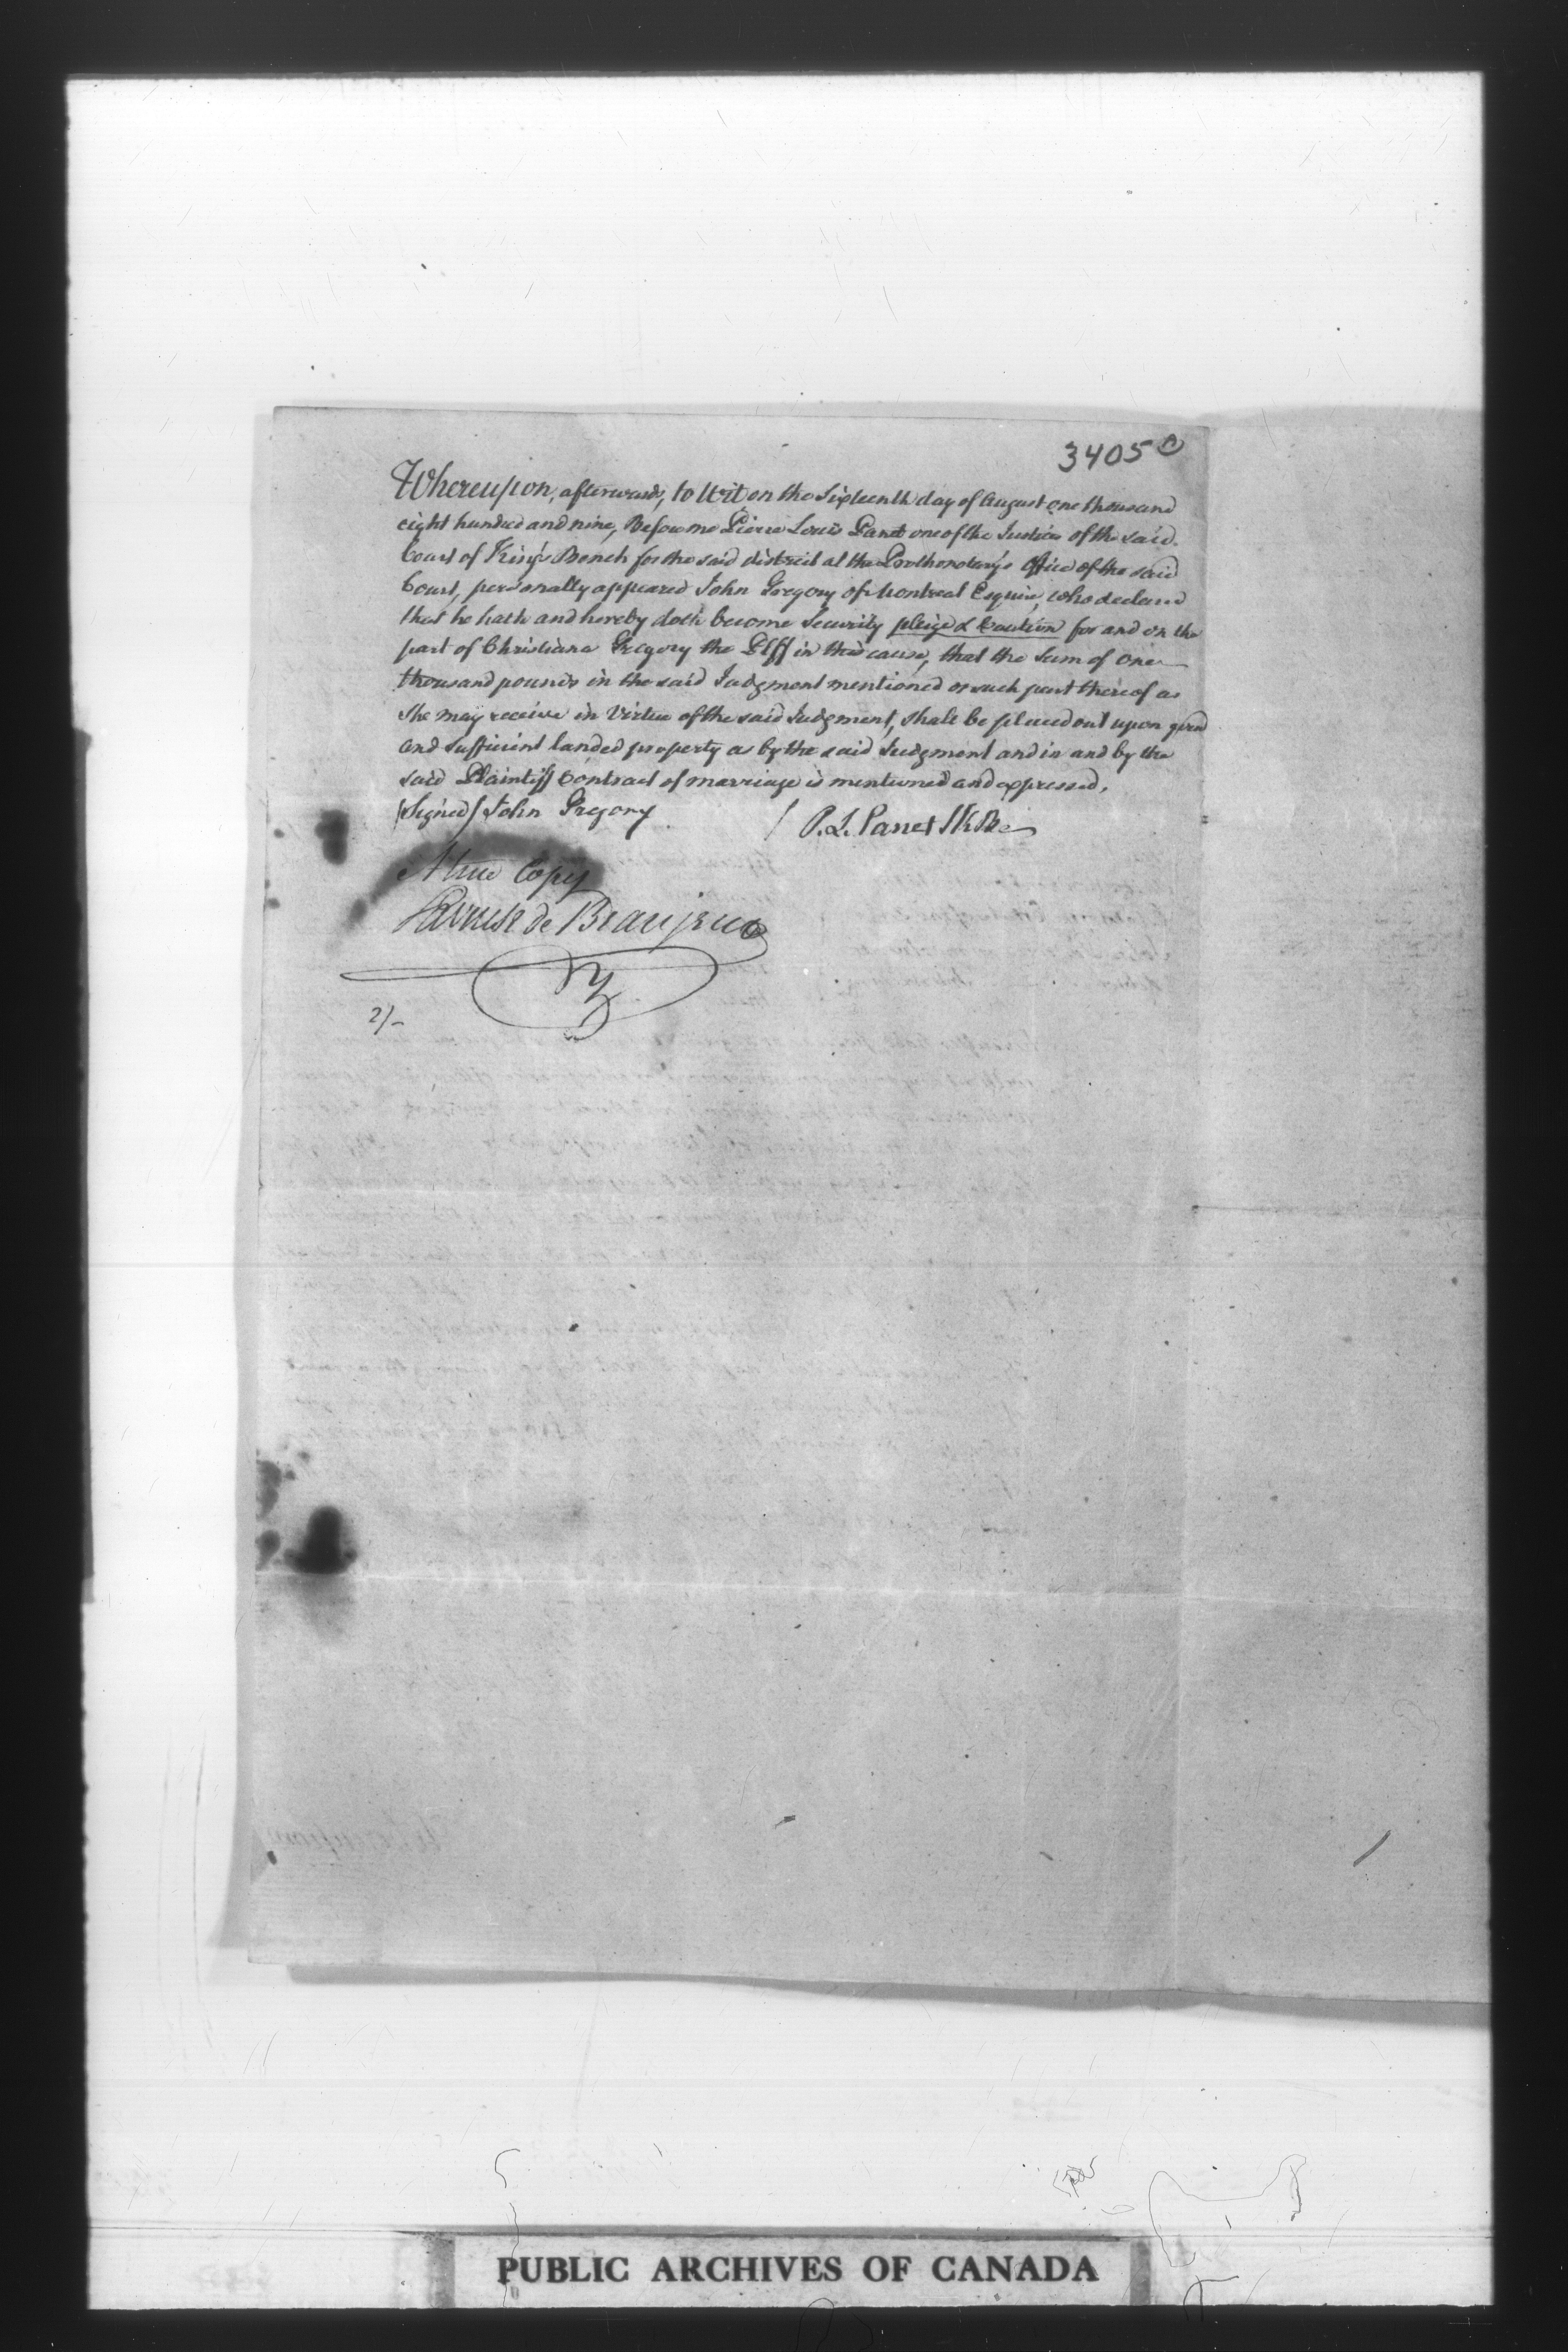 3405 c
Whereupon, afterwards, to Wit on the Sixteenth day of August one thousand
eight hundred and nine, Before me Pierre Louis Panet one of the Justices of the said
Court of King's Bench for the said district at the Prothonotary's Office of the said
Court, personally appeared John Gregory of Montreal Esquire, who declared
that he hath and hereby doth become Security pleige & Caution for and on the
part of Christiana Gregory the Plff in this cause, that the Sum of One
thousand pounds in the said Judgment mentioned or such part thereof as
She may receive in Virtue of the said Judgment, shall be placed out upon good
and sufficient landed property as by the said Judgment and in and by the
said Plaintiff Contract of marriage is mentioned and expressed.
(Signed) John Gregory / P. L. Panet JKB
A true Copy
de Beaujeu
2/-
PUBLIC ARCHIVES OF CANADA